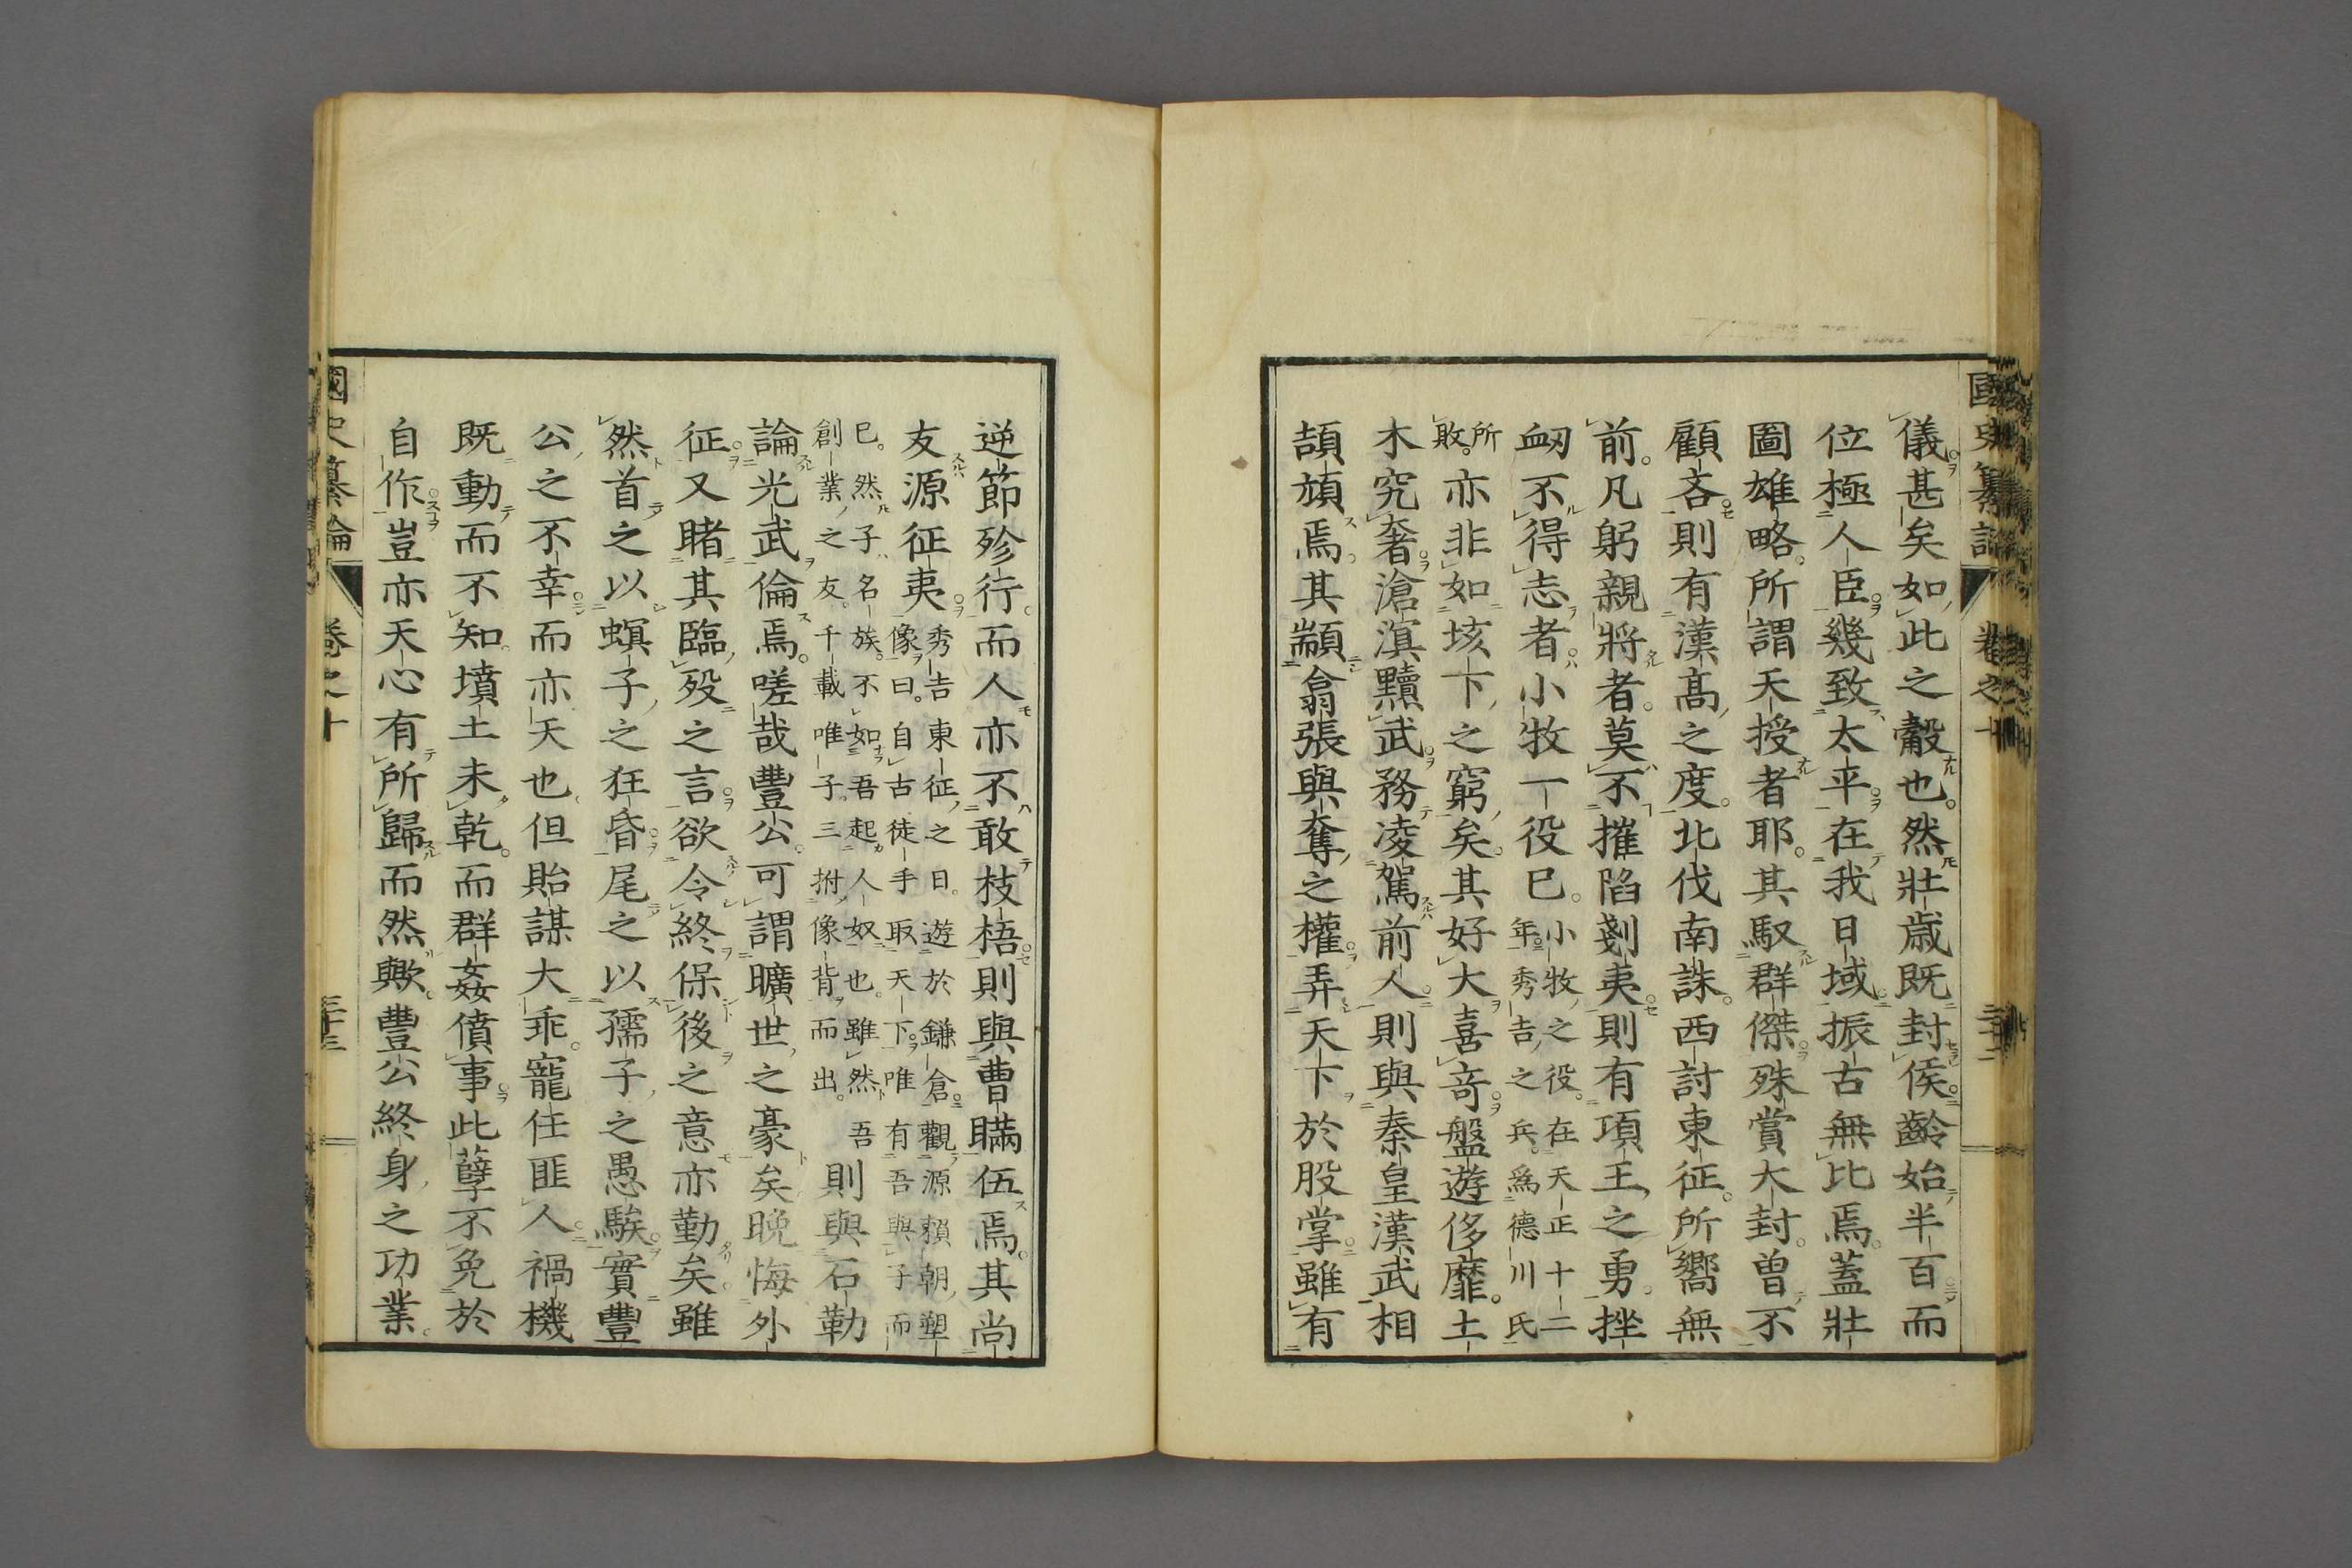 儀甚矣如此之轂也。然壯歲既封侯齡始半百而
位極人臣幾致太平在我日域振古無比焉。蓋壯
圖雄略。所謂天授者耶。其馭群傑殊賞大封。曾不
顧吝則有漢高之度。北伐南誅。西討東征。所嚮無
前。凡躬親將者。莫不摧陷剗夷則有項王之勇。挫
衂不得志者小牧一役已。小牧之役。在天正十二
年秀吉之兵。爲德川氏
所
敗。亦非如垓下之窮矣。其好大喜奇。盤遊侈靡。土
木究奢。滄溟黷武務凌駕前人則與秦皇漢武相
頡頏焉。其顓翕張與奪之權弄天下於股掌雖有
國史纂論 卷之十
逆節殄行。而人亦不敢枝梧則與曹瞞伍焉。其尚
友源征夷秀吉東征之日。遊於鎌倉。觀源賴朝塑
像曰。自古徒手取天下。唯有吾與子而
已。然子名族。不如吾起人奴也。雖然吾
創業之友。千載唯子。三拊像背而出。則與石勒
論光武倫焉。嗟哉豐公。可謂曠世之豪矣晚悔外
征。又睹其臨歿之言欲令終保後之意亦勤矣。雖
然首之以螟子之狂昏尾之以孺子之愚騃實豐
公之不幸而亦天也。但貽謀大乖。寵任匪人禍機
既動而不知。墳土未乾。而群姦僨事此孽不免於
自作豈亦天心有所歸而然歟。豐公終身之功業。
國史纂論 卷之十 三十三